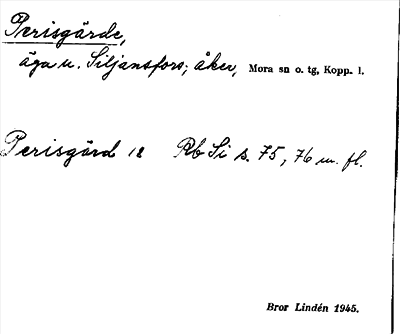 Perisgärde,
äga u. Siljansfors; åker, Mora sn o. tg, Kopp. l.
Perisgärd 12 Rb Si s. 75, 76 m. fl.
Bror Lindén 1945.